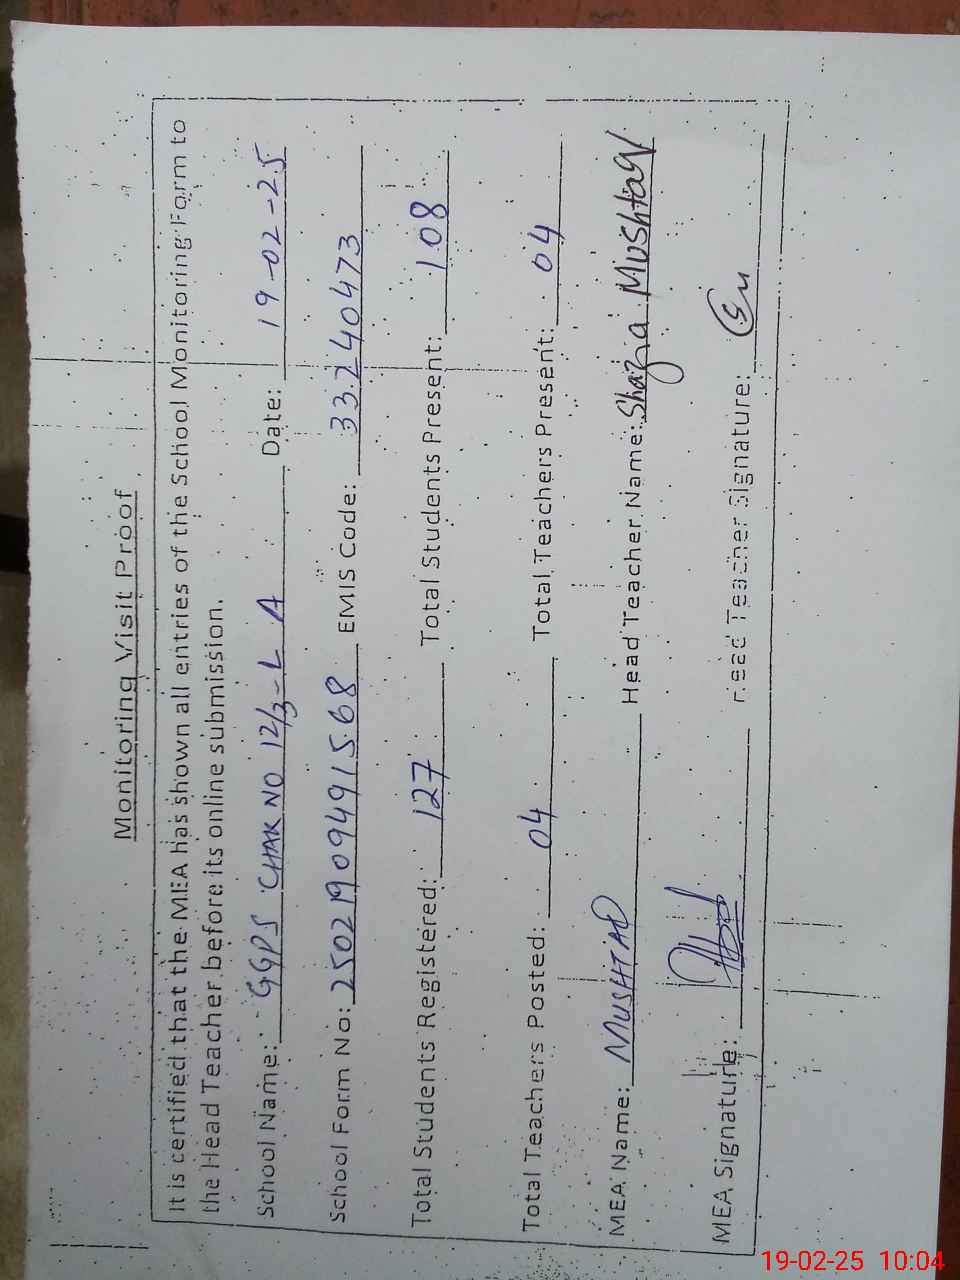 Monitoring Visit Proof
It is certified that the MEA has shown all entries of the School Monitoring Form to
the Head Teacher before its online submission.
School Name: GGPS CHAK NO 12/3-L A Date: 19-02-25
School Form No: 25021909491568 EMIS Code: 33240473
Total Students Registered: 127 Total Students Present: 108
Total Teachers Posted: 04 Total Teachers Present: 04
MEA Name: MUSHTAQ Head Teacher Name: Shazia Mushtaq
MEA Signature: Head Teacher Signature:
19-02-25 10:04